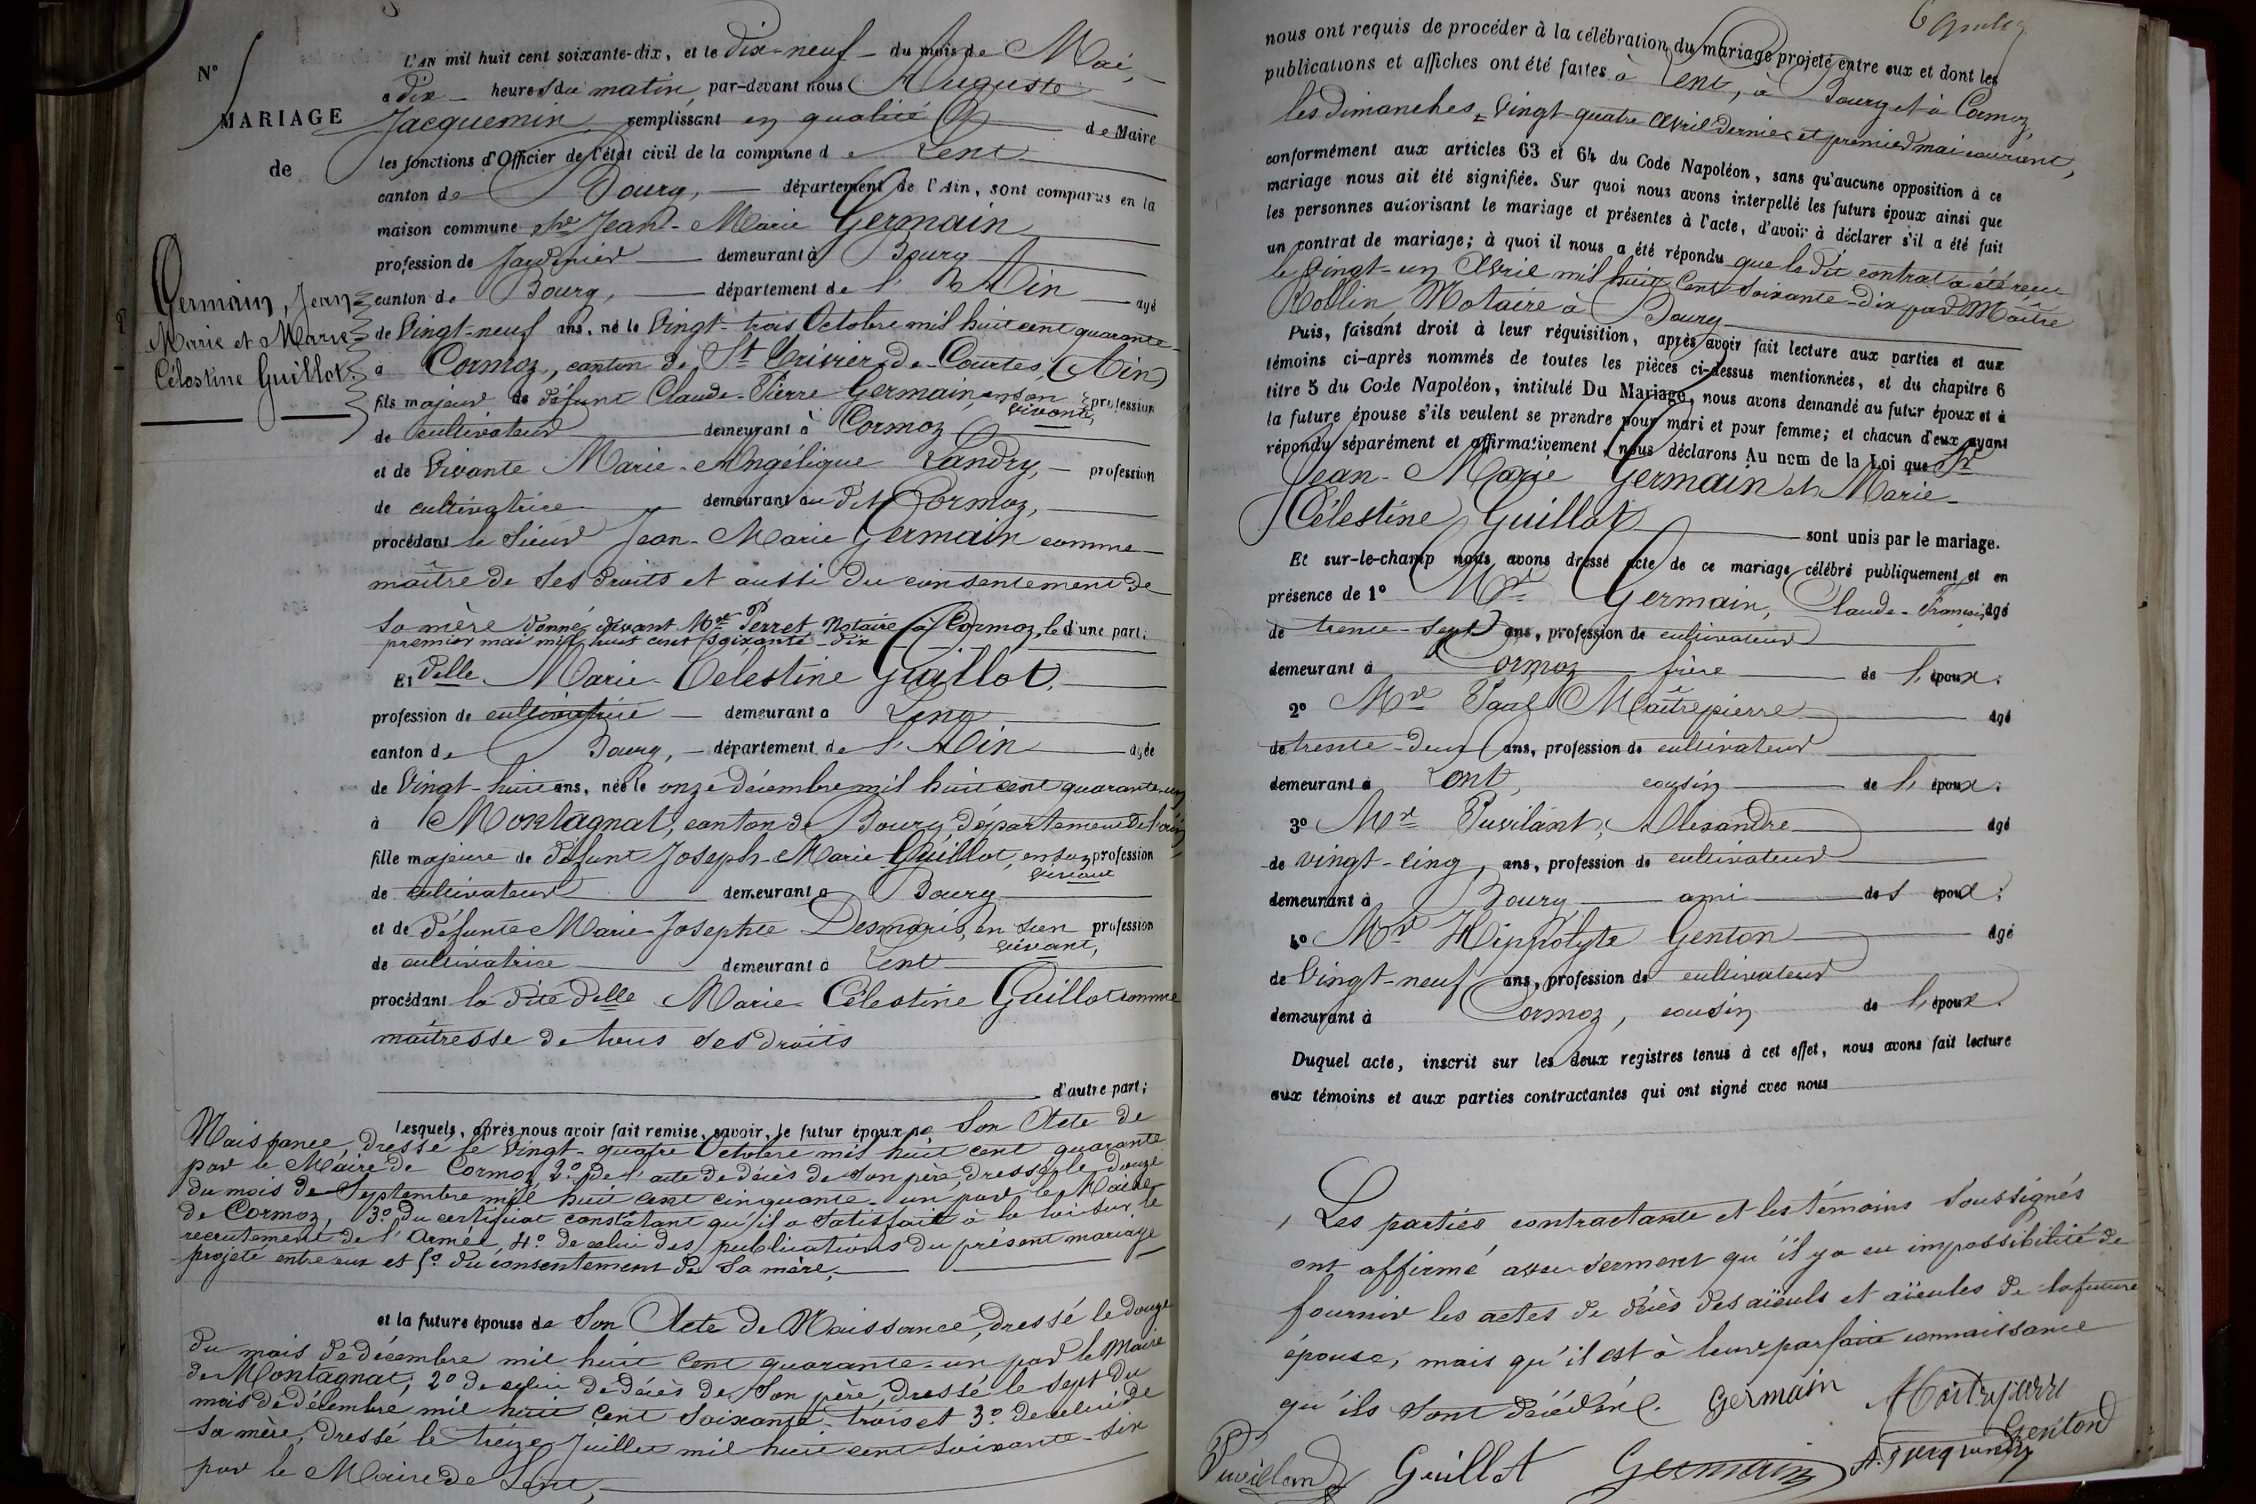 N°
MARIAGE
de
Germain, Jean
Marie et Marie
Célestine Guillot.
L'AN mil huit cent soixante-dix, et le dix-neuf du mois de Mai,
à dix heures du matin, par-devant nous Auguste
Jacquemin, remplissant en qualité de Maire
les fonctions d'Officier de l'état civil de la commune de Lent
canton de Bourg, département de l'Ain, sont comparus en la
maison commune Sr Jean-Marie Germain
profession de Jardinier demeurant à Bourg
canton de Bourg, département de l'Ain âgé
de Vingt-neuf ans, né le Vingt-trois Octobre mil huit cent quarante
à Cormoz, canton de St Trivier-de-Courtes, (Ain)
fils majeur de défunt Claude-Pierre Germain, en son vivant, profession
de cultivateur demeurant à Cormoz
et de Vivante Marie-Angélique Landry, profession
de cultivatrice demeurant au dit Cormoz,
procédant le Sieur Jean-Marie Germain comme
maître de ses droits et aussi du consentement de
sa mère donné devant Me Perret Notaire à Cormoz, le d'une part;
premier mai mil huit cent soixante-dix
Et Delle Marie-Célestine Guillot,
profession de cultivatrice demeurant à Lent
canton de Bourg, département de l'Ain âgée
de Vingt-huit ans, née le onze décembre mil huit cent quarante-un
à Montagnat, canton de Bourg, département de l'Ain
fille majeure de défunt Joseph-Marie Guillot, en son vivant profession
de cultivateur demeurant à Bourg
et de défunte Marie-Josephte Desmaris, en son vivant, profession
de cultivatrice demeurant à Lent
procédant la dite Delle Marie-Célestine Guillot comme
maîtresse de tous ses droits
d'autre part;
Lesquels, après nous avoir fait remise, savoir, le futur époux de Son Acte de
Naissance, dressé le Vingt-quatre Octobre mil huit cent quarante
par le Maire de Cormoz, 2° de l'acte de décès de son père, dressé le douze
du mois de Septembre mil huit cent cinquante-un par le Maire
de Cormoz, 3° du certificat constatant qu'il a satisfait à la loi sur le
recrutement de l'Armée, 4° de celui des publications du présent mariage
projeté entre eux et 5° du consentement de sa mère,
et la future épouse de Son Acte de Naissance, dressé le douze
du mois de décembre mil huit cent quarante-un par le Maire
de Montagnat, 2° de celui de décès de son père, dressé le sept du
mois de décembre mil huit cent soixante-trois et 3° de celui de
sa mère, dressé le treize Juillet mil huit cent soixante-six
par le Maire de Lent,
nous ont requis de procéder à la célébration du mariage projeté entre eux et dont les
publications et affiches ont été faites à Lent, à Bourg et à Cormoz,
les dimanches Vingt-quatre Avril dernier et premier mai courant,
conformément aux articles 63 et 64 du Code Napoléon, sans qu'aucune opposition à ce
mariage nous ait été signifiée. Sur quoi nous avons interpellé les futurs époux ainsi que
les personnes autorisant le mariage et présentes à l'acte, d'avoir à déclarer s'il a été fait
un contrat de mariage; à quoi il nous a été répondu que le dit contrat a été reçu
le Vingt-un Avril mil huit cent soixante-dix par Maître
Rollin, Notaire à Bourg
Puis, faisant droit à leur réquisition, après avoir fait lecture aux parties et aux
témoins ci-après nommés de toutes les pièces ci-dessus mentionnées, et du chapitre 6
titre 5 du Code Napoléon, intitulé Du Mariage, nous avons demandé au futur époux et à
la future épouse s'ils veulent se prendre pour mari et pour femme; et chacun d'eux ayant
répondu séparément et affirmativement, nous déclarons Au nom de la Loi que Sr
Jean-Marie Germain et Marie-
Célestine Guillot sont unis par le mariage.
Et sur-le-champ nous avons dressé acte de ce mariage célébré publiquement et en
présence de 1° Mr Germain, Claude-François, âgé
de trente-sept ans, profession de cultivateur
demeurant à Cormoz frère de l'époux;
2° Mr Paul Maîtrepierre âgé
de trente-deux ans, profession de cultivateur
demeurant à Lent, cousin de l'époux;
3° Mr Puvilant, Alexandre âgé
de vingt-cinq, ans, profession de cultivateur
demeurant à Bourg ami des époux;
4° Mr Hippolyte Genton âgé
de Vingt-neuf ans, profession de cultivateur
demeurant à Cormoz, cousin de l'époux.
Duquel acte, inscrit sur les deux registres tenus à cet effet, nous avons fait lecture
aux témoins et aux parties contractantes qui ont signé avec nous
Les parties contractante et les témoins soussignés
ont affirmé avec serment qu'il y a eu impossibilité de
fournir les actes de décès des aïeuls et aïeules de la future
épouse, mais qu'il est à leur parfaite connaissance
qu'ils sont décédés. Germain Maitrepierre
Genton
Puvilland Guillot Germain A. Jacquemin